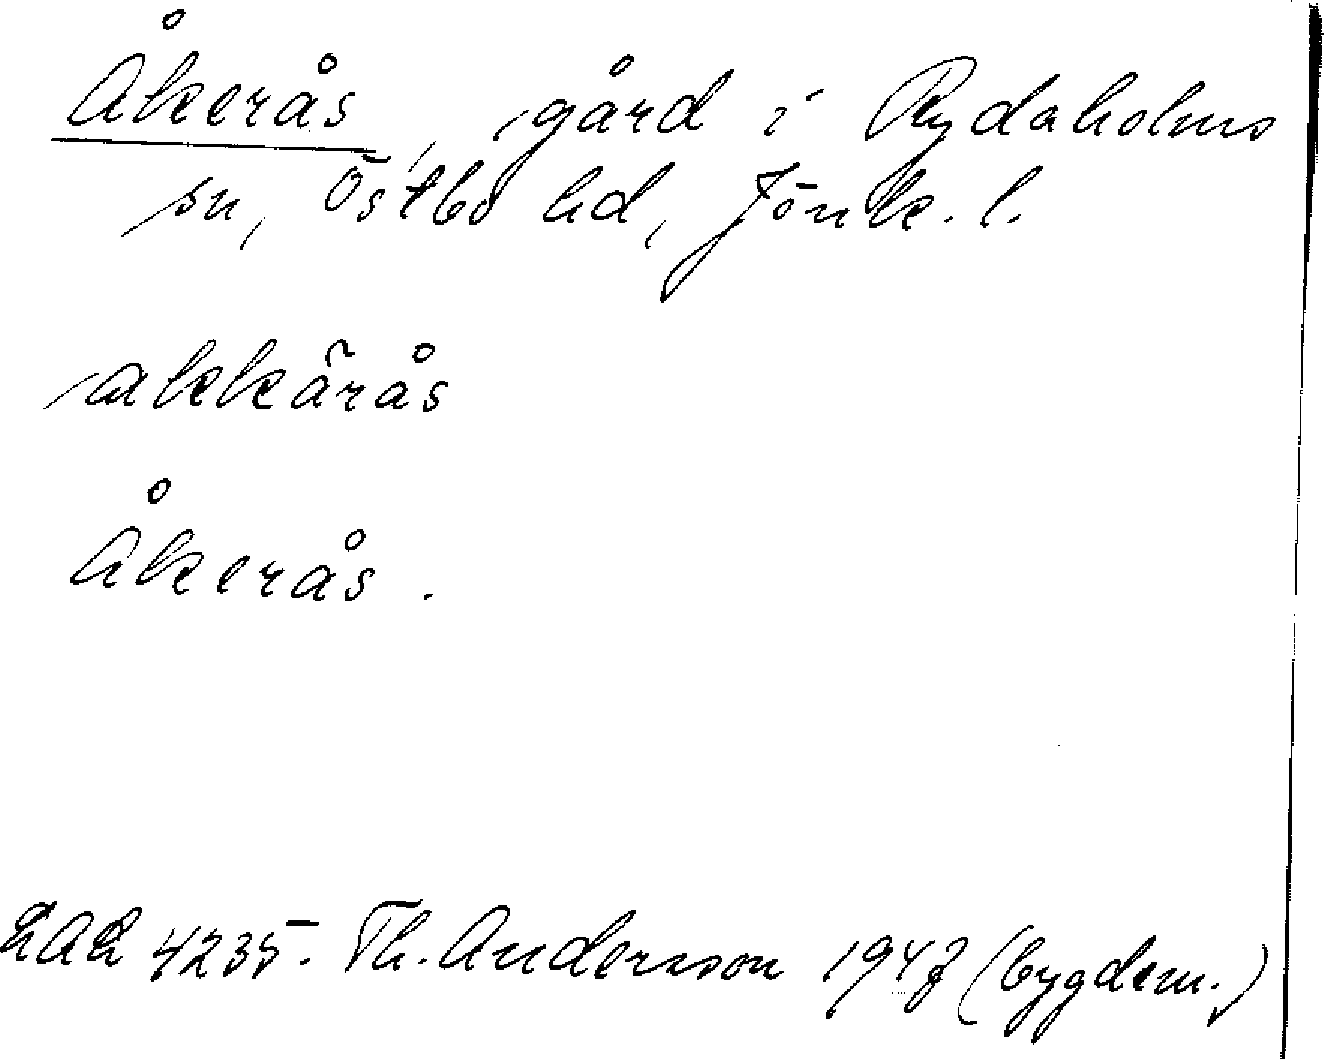 Åkerås, gård i Rydaholms
sn, Östbo hd, Jönk. l.
akkårås
Åkerås.
4235. Th. Andersson 1947 (bygdem.)